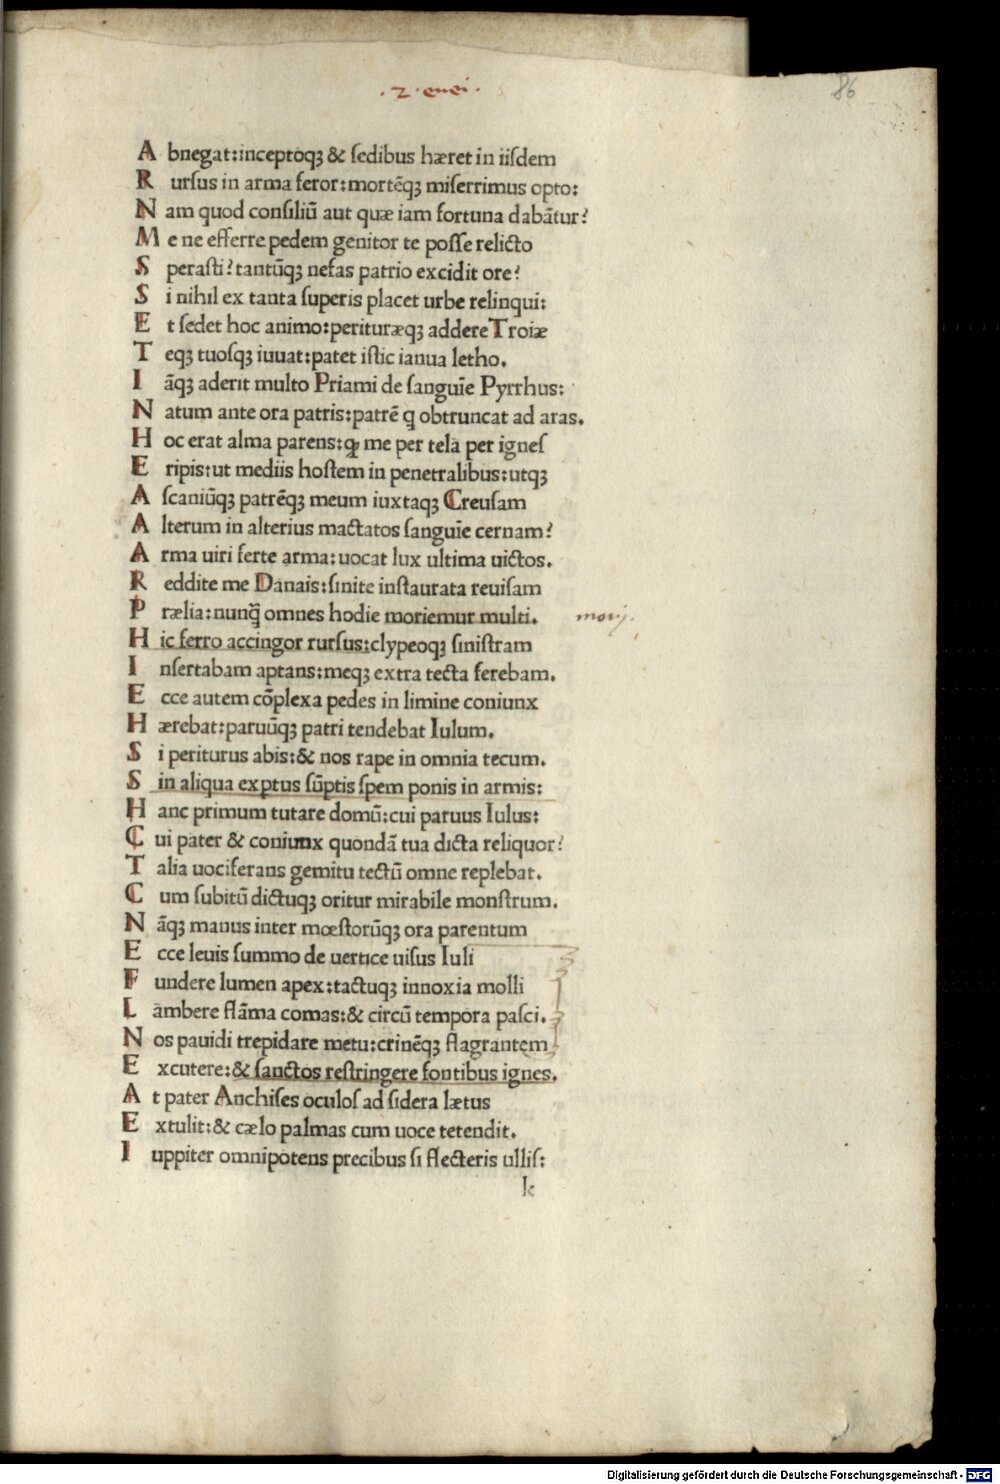 .2.enei.
86
A bnegat:inceptoqꝫ & ſedibus hæret in iiſdem
R urſus in arma feror:mortēqꝫ miſerrimus opto:
N am quod conſiliū aut quæ iam fortuna dabātur?
M e ne efferre pedem genitor te poſſe relicto
S peraſti? tantūqꝫ nefas patrio excidit ore?
S i nihil ex tanta ſuperis placet urbe relinqui:
E t ſedet hoc animo:perituræqꝫ addere Troiæ
T eqꝫ tuoſqꝫ iuuat:patet iſtic ianua letho.
I āqꝫ aderit multo Priami de ſanguīe Pyrrhus:
N atum ante ora patris:patrē q̄ obtruncat ad aras.
H oc erat alma parens:ꝙ me per tela per igneſ
E ripis:ut mediis hoſtem in penetralibus:utqꝫ
A ſcaniūqꝫ patrēqꝫ meum iuxtaqꝫ Creuſam
A lterum in alterius mactatos ſanguīe cernam?
A rma uiri ferte arma:uocat lux ultima uictos.
R eddite me Danais:ſinite inſtaurata reuiſam
P rælia:nunq̄ omnes hodie moriemur multi. morij.
H ic ferro accingor rurſus:clypeoqꝫ ſiniſtram
I nſertabam aptans:meqꝫ extra tecta ferebam.
E cce autem cōplexa pedes in limine coniunx
H ærebat:paruūqꝫ patri tendebat Iulum.
S i periturus abis:& nos rape in omnia tecum.
S in aliqua exptus sūptis ſpem ponis in armis:
H anc primum tutare domū:cui paruus Iulus:
C ui pater & coniunx quondā tua dicta reliquor?
T alia uociferans gemitu tectū omne replebat.
C um ſubitū dictuqꝫ oritur mirabile monſtrum.
N āqꝫ manus inter mœſtorūqꝫ ora parentum
E cce leuis ſummo de uertice uiſus Iuli
F undere lumen apex:tactuqꝫ innoxia molli
L ambere flāma comas:& circū tempora paſci.
N os pauidi trepidare metu:crinēqꝫ flagrantem
E xcutere:& ſanctos reſtringere fontibus ignes.
A t pater Anchiſes oculoſ ad ſidera lætus
E xtulit:& cælo palmas cum uoce tetendit.
I uppiter omnipotens precibus ſi flecteris ulliſ:
k
Digitalisierung gefördert durch die Deutsche Forschungsgemeinschaft - DFG